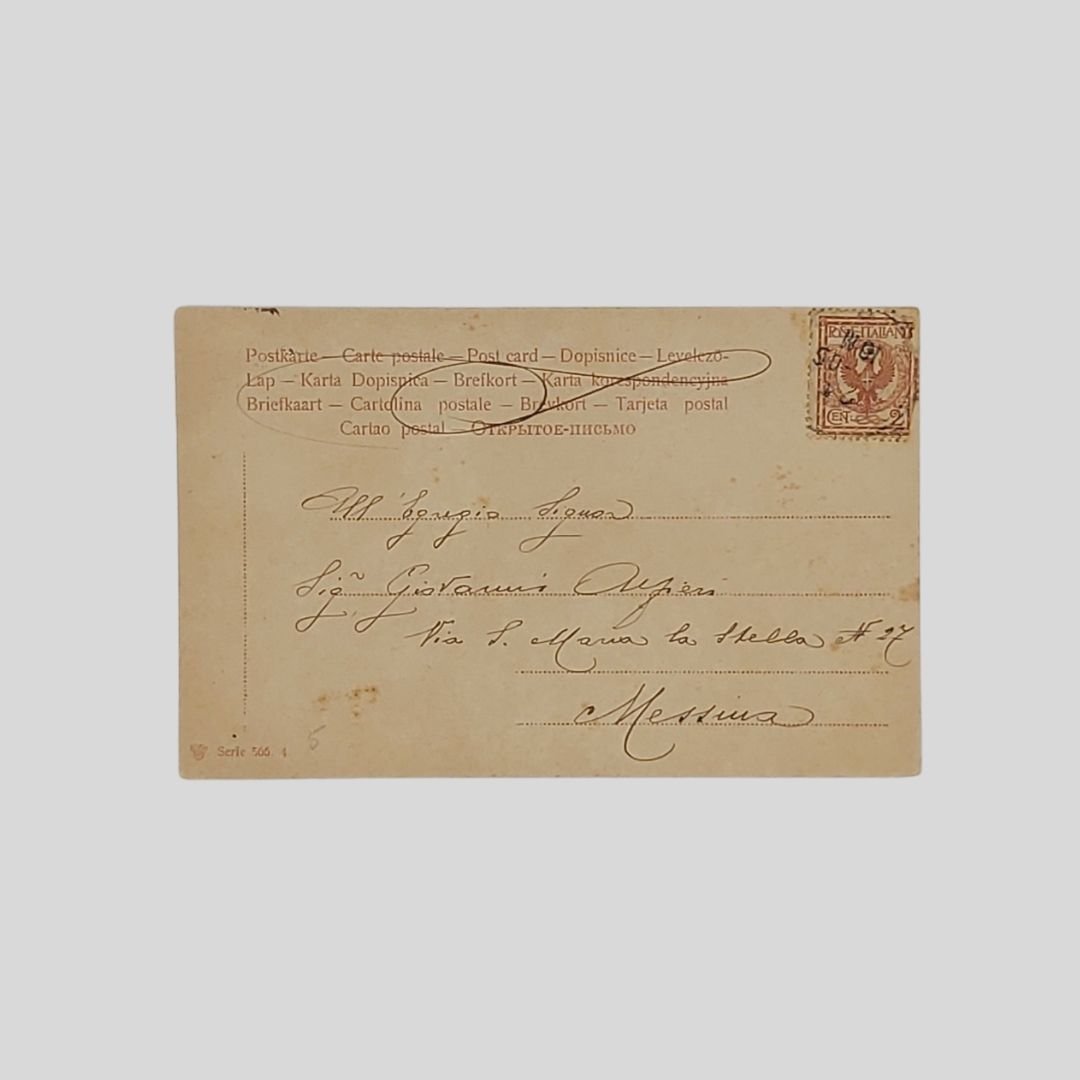 Postkarte — Carte postale — Post card — Dopisnice — Levelező-
Lap — Karta Dopisnica — Brefkort — Karta korespondencyjna
Briefkaart — Cartolina postale — Brevkort — Tarjeta postal
Cartao postal — Открытое-письмо
POSTE ITALIANE
CEN. 2
All'Egregio Signor
Sigr Giovanni Alfieri
Via S. Maria la Stella N 27
Messina
Serie 566. 4
5